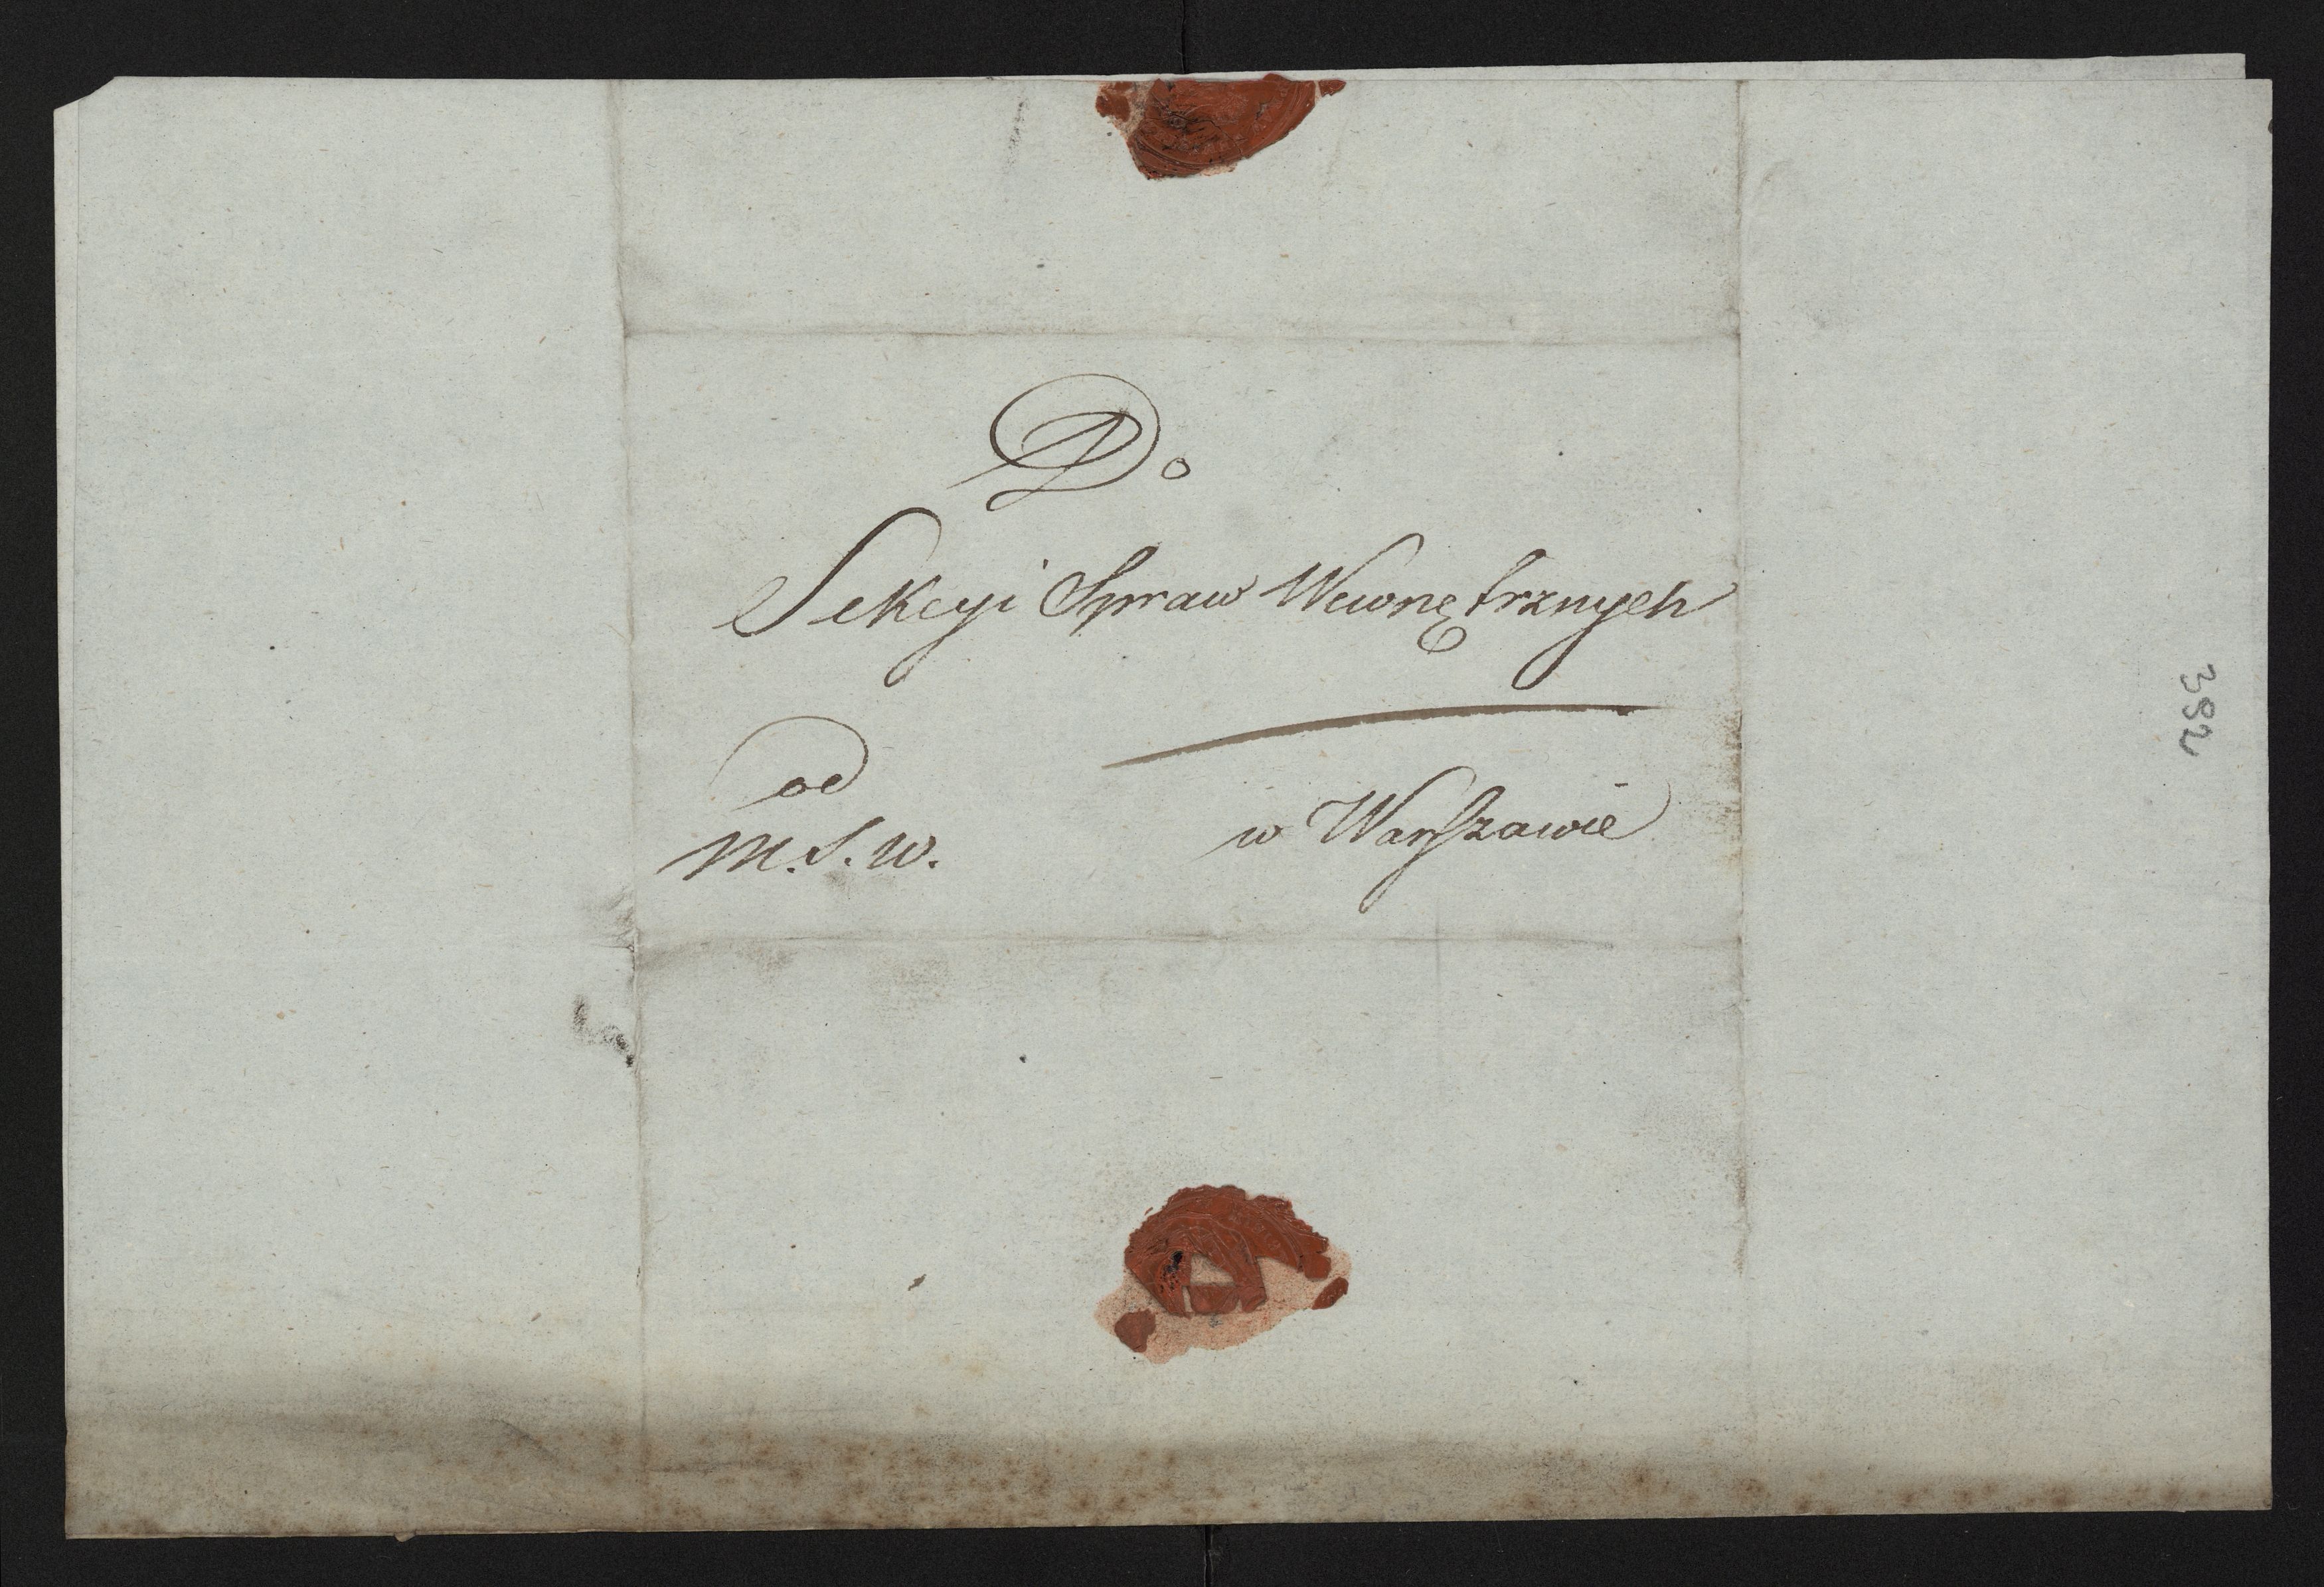 Do
Sekcyi Spraw Wewnętrznych
od
M.S.W.
w Warszawie
392